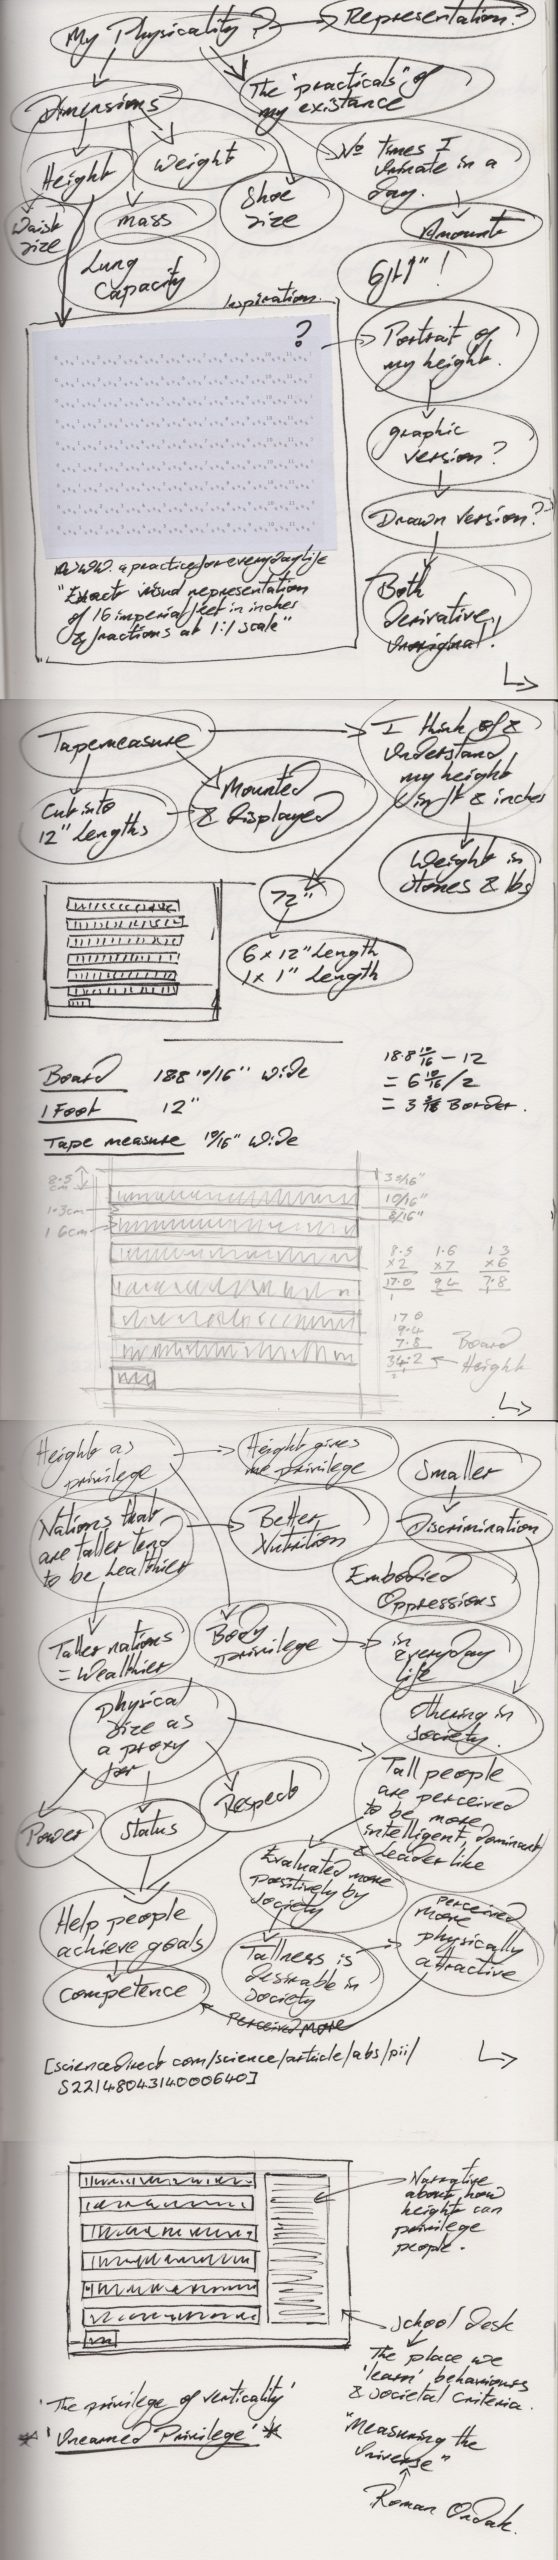 My Physicality?
Representation?
The "practicals" of
my existance
Dimensions
Height
Weight
No times I
urinate in a
day.
Waist
size
mass
Shoe
size
Amount
Lung
Capacity
6ft1" !
Inspiration.
?
Portrait of
my height.
graphic
version?
Drawn version?
Both
Derivative,
Unoriginal!
WWW. a practice for everyday life
"Exact visual representation
of 16 imperial feet in inches
& fractions at 1:1 scale"
Tapemeasure
I think of &
understand
my height
in ft & inches
Cut into
12" Lengths
Mounted
& Displayed
Weight in
stones & lbs
72"
6 x 12" Length
1 x 1" Length
Board 18.8 10/16" Wide
1 Foot 12"
Tape measure 10/16" Wide
18.8 10/16 - 12
= 6 10/16 /2
= 3 5/16 Border.
8.5
cm
1.3cm
1.6cm
3 5/16"
10/16"
8/16"
8.5
x2
17.0
1.6
x7
9.4
1.3
x6
7.8
17.0
9.4
7.8
34.2
Board
Height
Height as
privilege
Height gives
me privilege
Smaller
Nations that
are taller tend
to be healthier
Better
Nutrition
Discrimination
Embodied
Oppressions
Taller nations
= Wealthier
Body
privilege
in
everyday
life
Physical
size as
a proxy
for
othering in
society.
Power
Status
Respect
Tall people
are perceived
to be more
intelligent, dominant
& leader like
Evaluated more
positively by
society
Help people
achieve goals
Competence
Tallness is
desirable in
society
perceived
more
physically
attractive
perceived more
[sciencedirect.com/science/article/abs/pii/
S2214804314000640]
Narrative
about how
height can
privilege
people.
School desk
The place we
'learn' behaviours
& societal criteria.
'The privilege of verticality'
* 'Unearned Privilege' *
"Measuring the
Universe"
Roman Ondak.